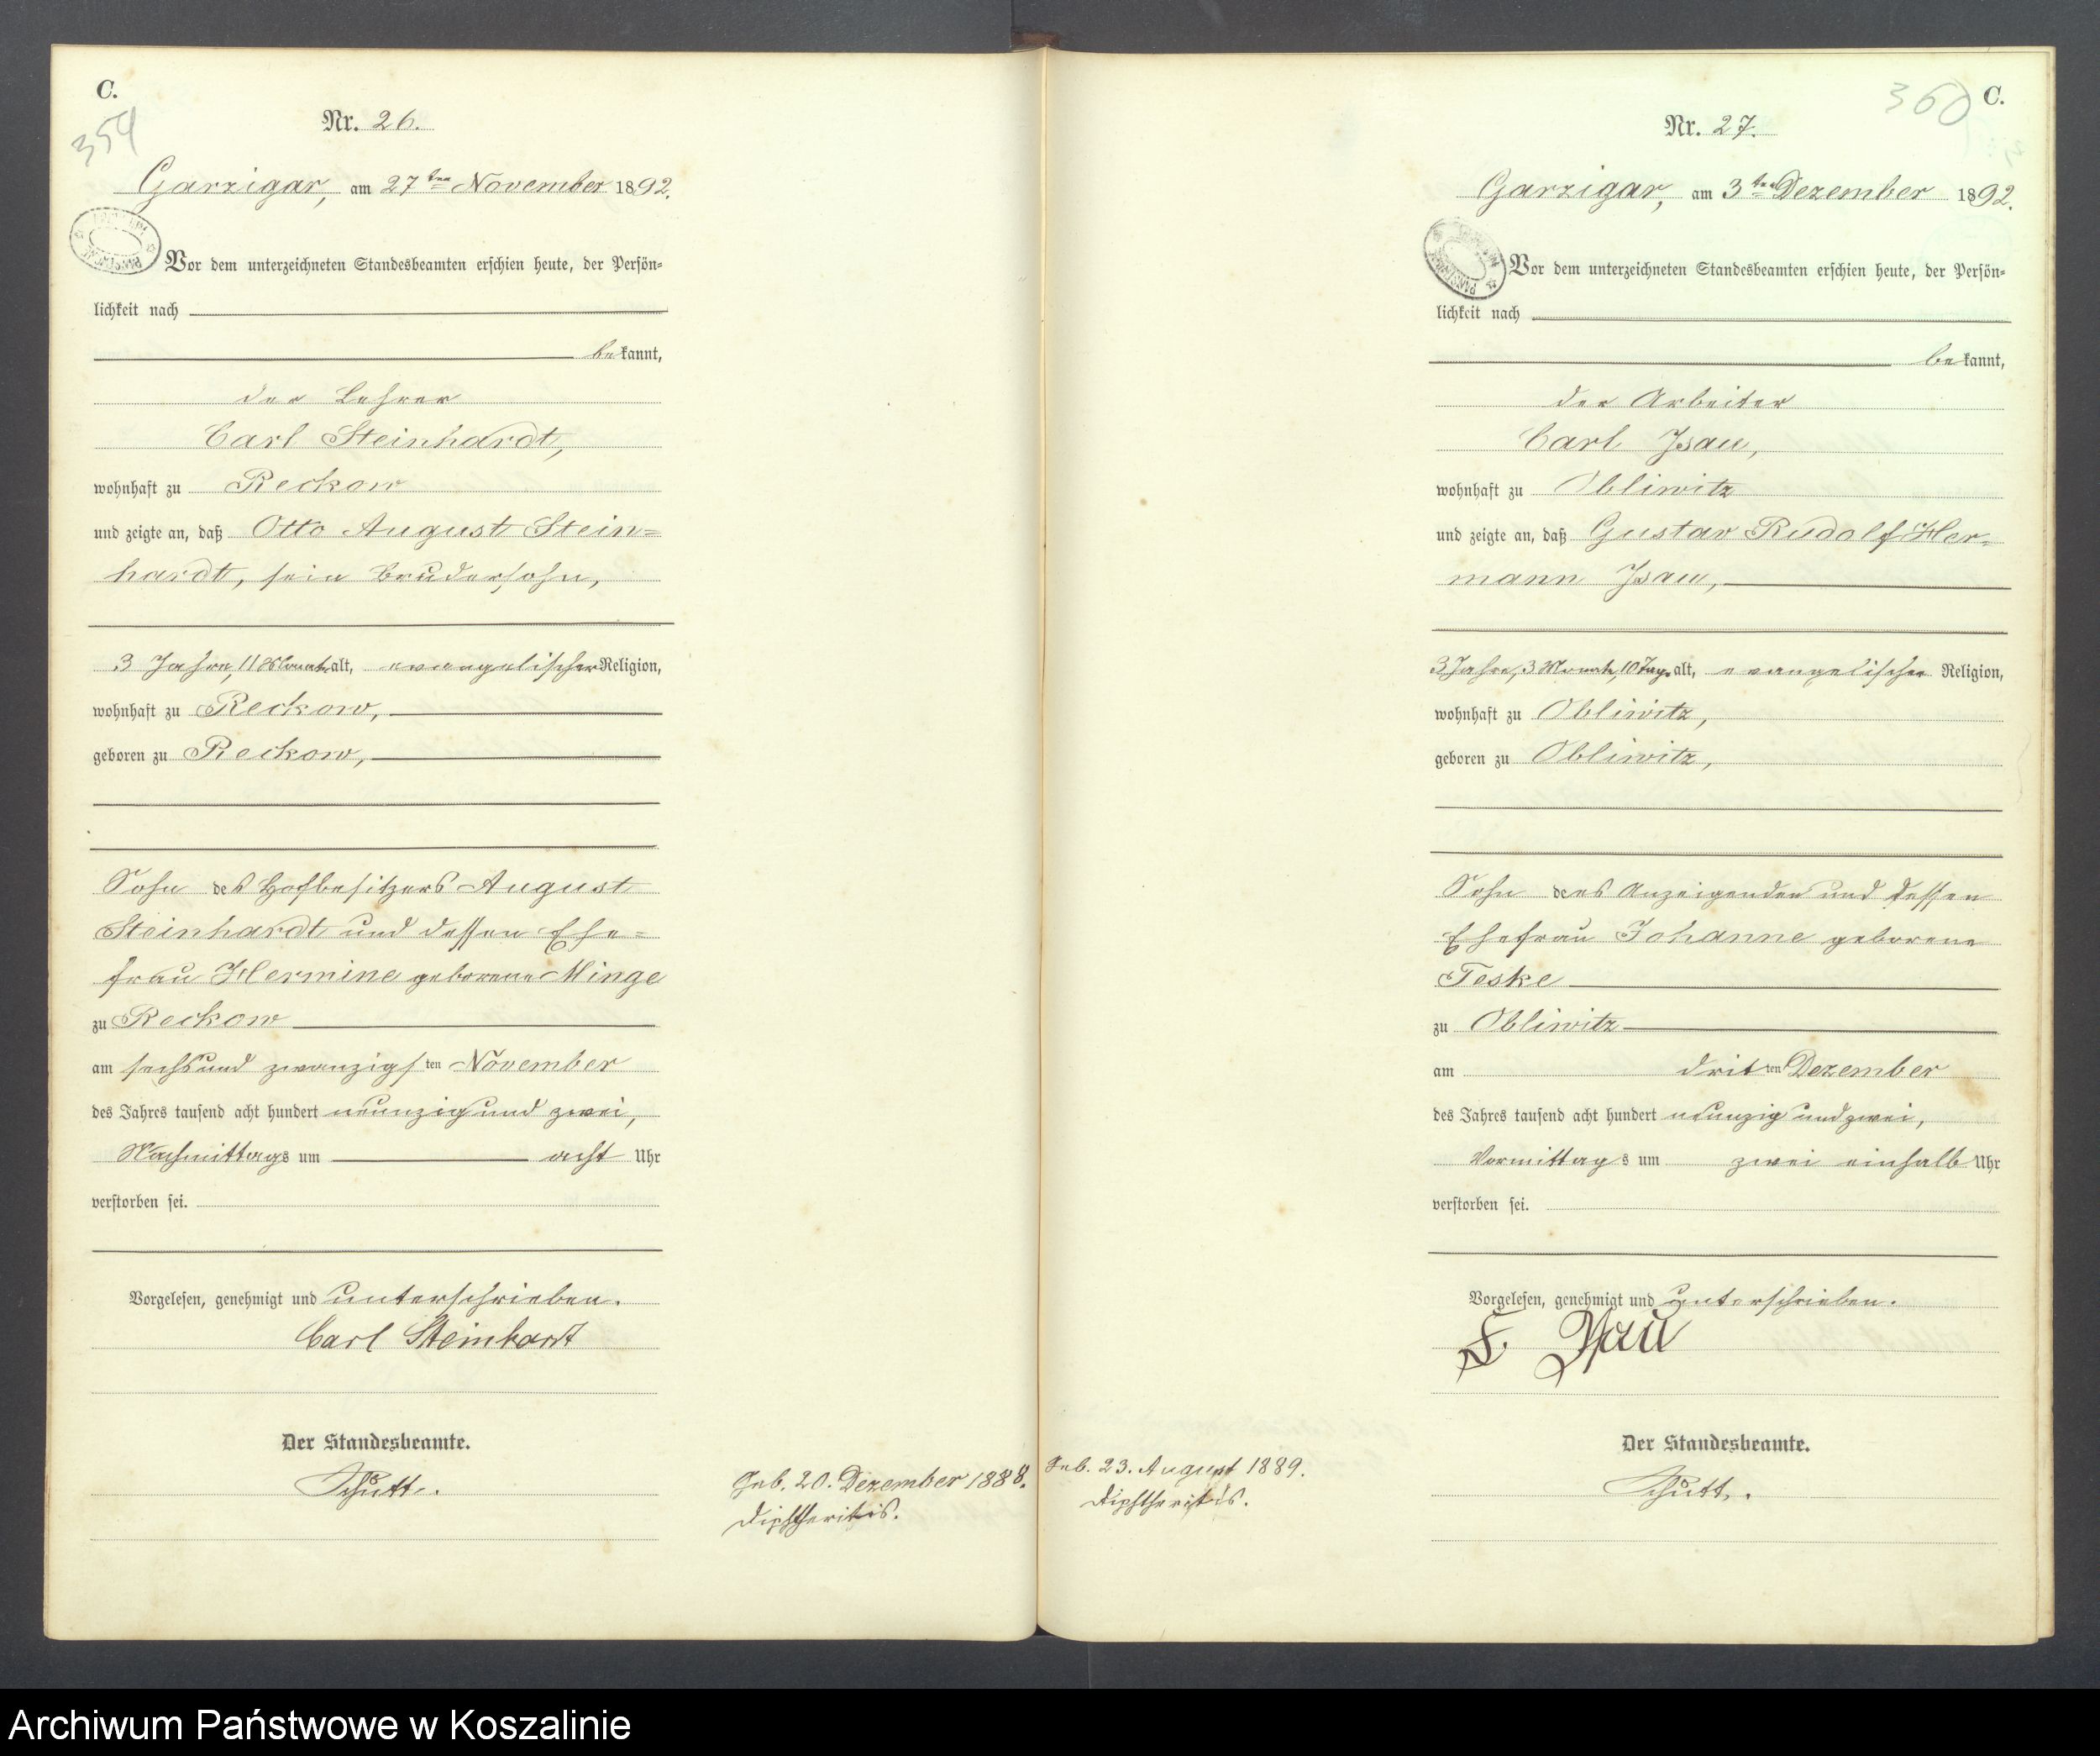 C.
354
Nr. 26.
Garzigar, am 27ten November 1892.
Vor dem unterzeichneten Standesbeamten erschien heute, der Persön=
lichkeit nach
bekannt,
der Lehrer
Carl Steinhardt,
wohnhaft zu Reckow
und zeigte an, daß Otto August Stein=
hardt, sein Brudersohn,
3 Jahre, 11 Monate alt, evangelischer Religion,
wohnhaft zu Reckow,
geboren zu Reckow,
Sohn des Hofbesitzers August
Steinhardt und dessen Ehe=
frau Hermine geborene Minge
zu Reckow
am sechsund zwanzigsten November
des Jahres tausend acht hundert neunzig und zwei,
Nachmittags um acht Uhr
verstorben sei.
Vorgelesen, genehmigt und unterschrieben.
Carl Steinhardt
Der Standesbeamte.
Schütt.
Geb. 20. Dezember 1888.
Diphtheritis.
360
C.
Nr. 27.
Garzigar, am 3ten Dezember 1892.
Vor dem unterzeichneten Standesbeamten erschien heute, der Persön=
lichkeit nach
bekannt,
der Arbeiter
Carl Isau,
wohnhaft zu Obliwitz
und zeigte an, daß Gustav Rudolf Her=
mann Isau,
3 Jahre, 3 Monate, 10 Tage alt, evangelischer Religion,
wohnhaft zu Obliwitz,
geboren zu Obliwitz,
Sohn des Anzeigenden und dessen
Ehefrau Johanne geborene
Teske
zu Obliwitz
am dritten Dezember
des Jahres tausend acht hundert neunzig und zwei,
Vormittags um zwei einhalb Uhr
verstorben sei.
Vorgelesen, genehmigt und unterschrieben.
Der Standesbeamte.
Schütt.
Geb. 23. August 1889.
Diphtheritis.
Archiwum Państwowe w Koszalinie